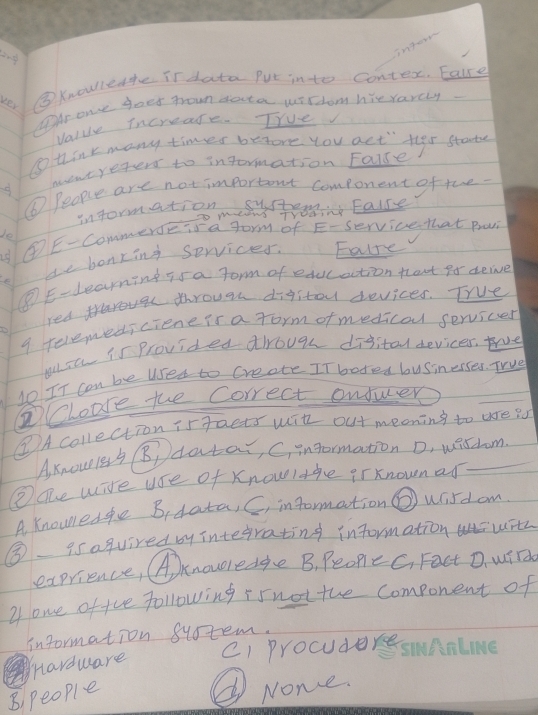 inform
③ Knowledge is data put into Contex. False
④ As one goes from data wisdom hierarchy -
Value increase. True ✓
⑤ think many times before you act" this state
ment refers to information False
⑥ People are not important Component of the -
information system. False
→ means trading
⑦ E-Commerse is a form of E-service that Provi
de banking services. False
⑧ E-learning is a form of education that is delive
red through through digital devices. True
9 Telemediciene is a form of medical services
which is Provided through digital devices. True
10 IT can be used to create IT based businesses. True
② Choose the Correct answer
① A collection is facts with out meaning to use is
A, Knowledg B, data, C, information D, wisdom.
② The wise use of Knowledge is known as
A, Knowledge B, data, C, information D wisdom.
③ - is aquired by integrating information with
exprience, A, Knowledge B, People C, Fact D, wisdo
4 one of the following is not the Component of
information system.
A Hardware C, Procudore
SINARLINE
B, People d None.